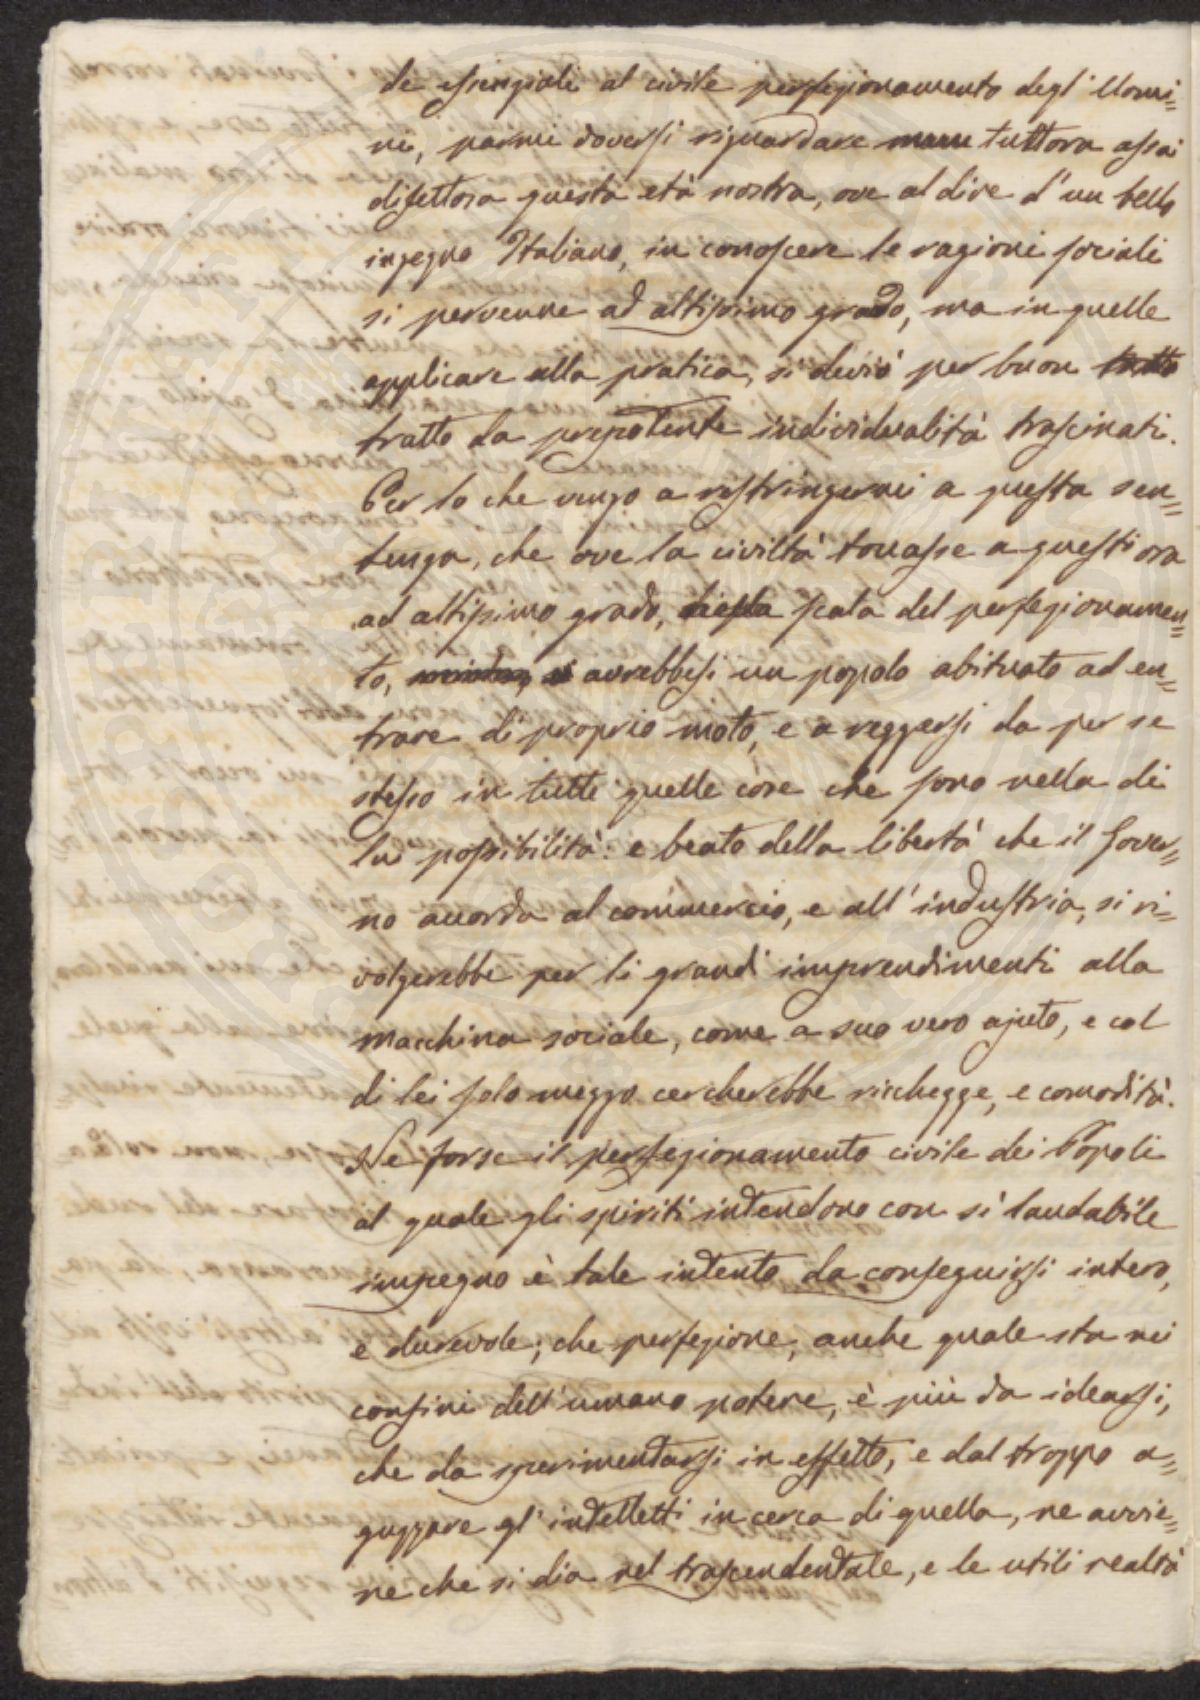 le essenziali al civile perfezionamento degl'Uomi=
ni, parmi doversi riguardare tuttora assai
difettosa questa età nostra, ove al dire d'un bello
ingegno Italiano, in conoscere le ragioni sociali
si pervenne ad altissimo grado, ma in quelle
applicare alla pratica, si deviò per buon tratto
tratto da prepotente individualità trascinati.
Per lo che vengo a restringermi a questa sen=
tenza, che ove la civiltà toccasse a questi ora
ad altissimo grado, scala del perfezionamen=
to, avrebbesi un popolo abituato ad en=
trare di proprio moto, e a reggersi da per se
stesso in tutte quelle cose che sono nella di
lui possibilità: e beato della libertà che il Gover=
no accorda al commercio, e all'industria, si ri=
volgerebbe per li grandi imprendimenti alla
macchina sociale, come a suo vero ajuto, e col
di lei solo mezzo cercherebbe ricchezze, e comodità.
Ne forse il perfezionamento civile dei Popoli
al quale gli spiriti intendono con sì laudabile
impegno è tale intento da conseguirsi intero,
e durevole; che perfezione, anche quale sta nei
confini dell'umano potere, è più da idearsi,
che da sperimentarsi in effetto, e dal troppo a=
guzzare gl'intelletti in cerca di quella, ne avvie=
ne che si dia nel trascendentale, e le utili realtà